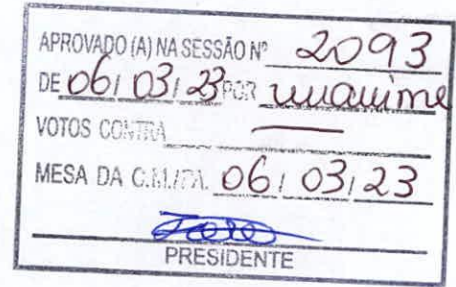 APROVADO (A) NA SESSÃO Nº 2093
DE 06/03/23 POR unanime
VOTOS CONTRA
MESA DA C.M./PA. 06/03/23
PRESIDENTE